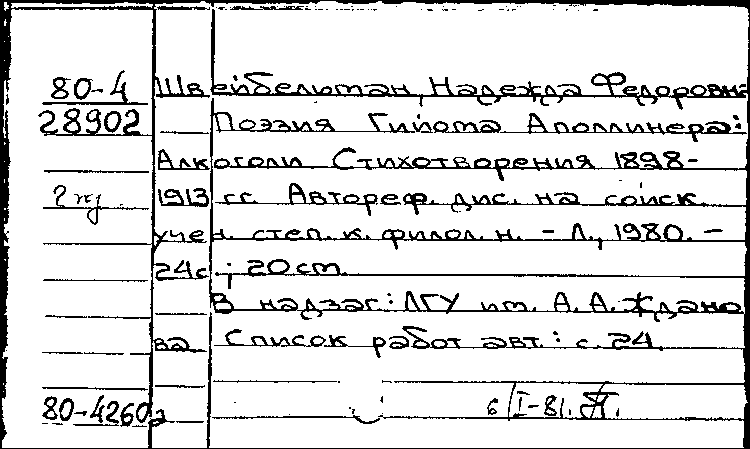 80-4 Швейбельман, Надежда Федоровна
28902 Поэзия Гийома Аполлинера:
Алкоголи. Стихотворения 1898-
2 1913 гг. Автореф. дис. на соиск.
учен. степ. к. филол. н. - Л., 1980. -
24с.; 20 см.
В надзаг.: ЛГУ им. А. А. Ждано
ва Список работ авт.: с. 24.
80-4260а 6/I-81.